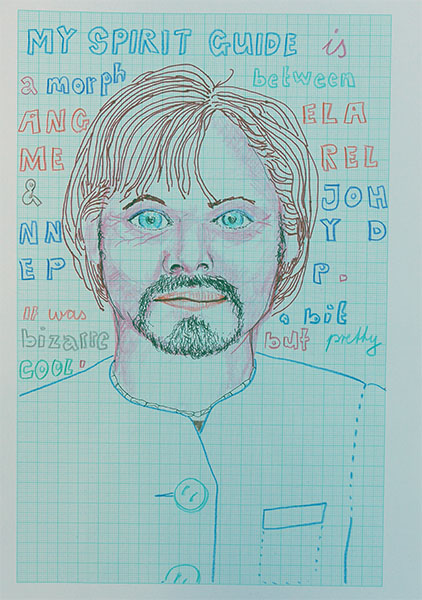 MY SPIRIT GUIDE is
a morph between
ANG ELA
ME REL
& JOH
NN Y D
EP P.
It was a bit
bizarre but pretty
COOL'